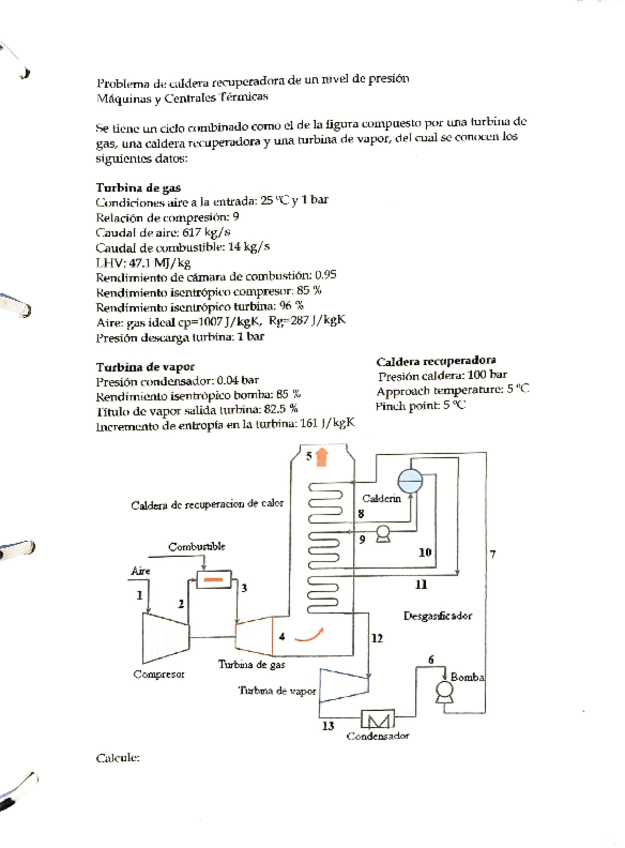 Problema de caldera recuperadora de un nivel de presión
Máquinas y Centrales Térmicas
Se tiene un ciclo combinado como el de la figura compuesto por una turbina de
gas, una caldera recuperadora y una turbina de vapor, del cual se conocen los
siguientes datos:
Turbina de gas
Condiciones aire a la entrada: 25 ºC y 1 bar
Relación de compresión: 9
Caudal de aire: 617 kg/s
Caudal de combustible: 14 kg/s
LHV: 47.1 MJ/kg
Rendimiento de cámara de combustión: 0.95
Rendimiento isentrópico compresor: 85 %
Rendimiento isentrópico turbina: 96 %
Aire: gas ideal cp=1007 J/kgK, Rg=287 J/kgK
Presión descarga turbina: 1 bar
Turbina de vapor
Presión condensador: 0.04 bar
Rendimiento isentrópico bomba: 85 %
Título de vapor salida turbina: 82.5 %
Incremento de entropía en la turbina: 161 J/kgK
Caldera recuperadora
Presión caldera: 100 bar
Approach temperature: 5 ºC
Pinch point: 5 ºC
5
Caldera de recuperacion de calor
Calderin
8
9
10
7
Combustible
Aire
1
2
3
11
Desgasificador
4
12
Turbina de gas
Compresor
6
Bomba
Turbina de vapor
13
Condensador
Calcule: